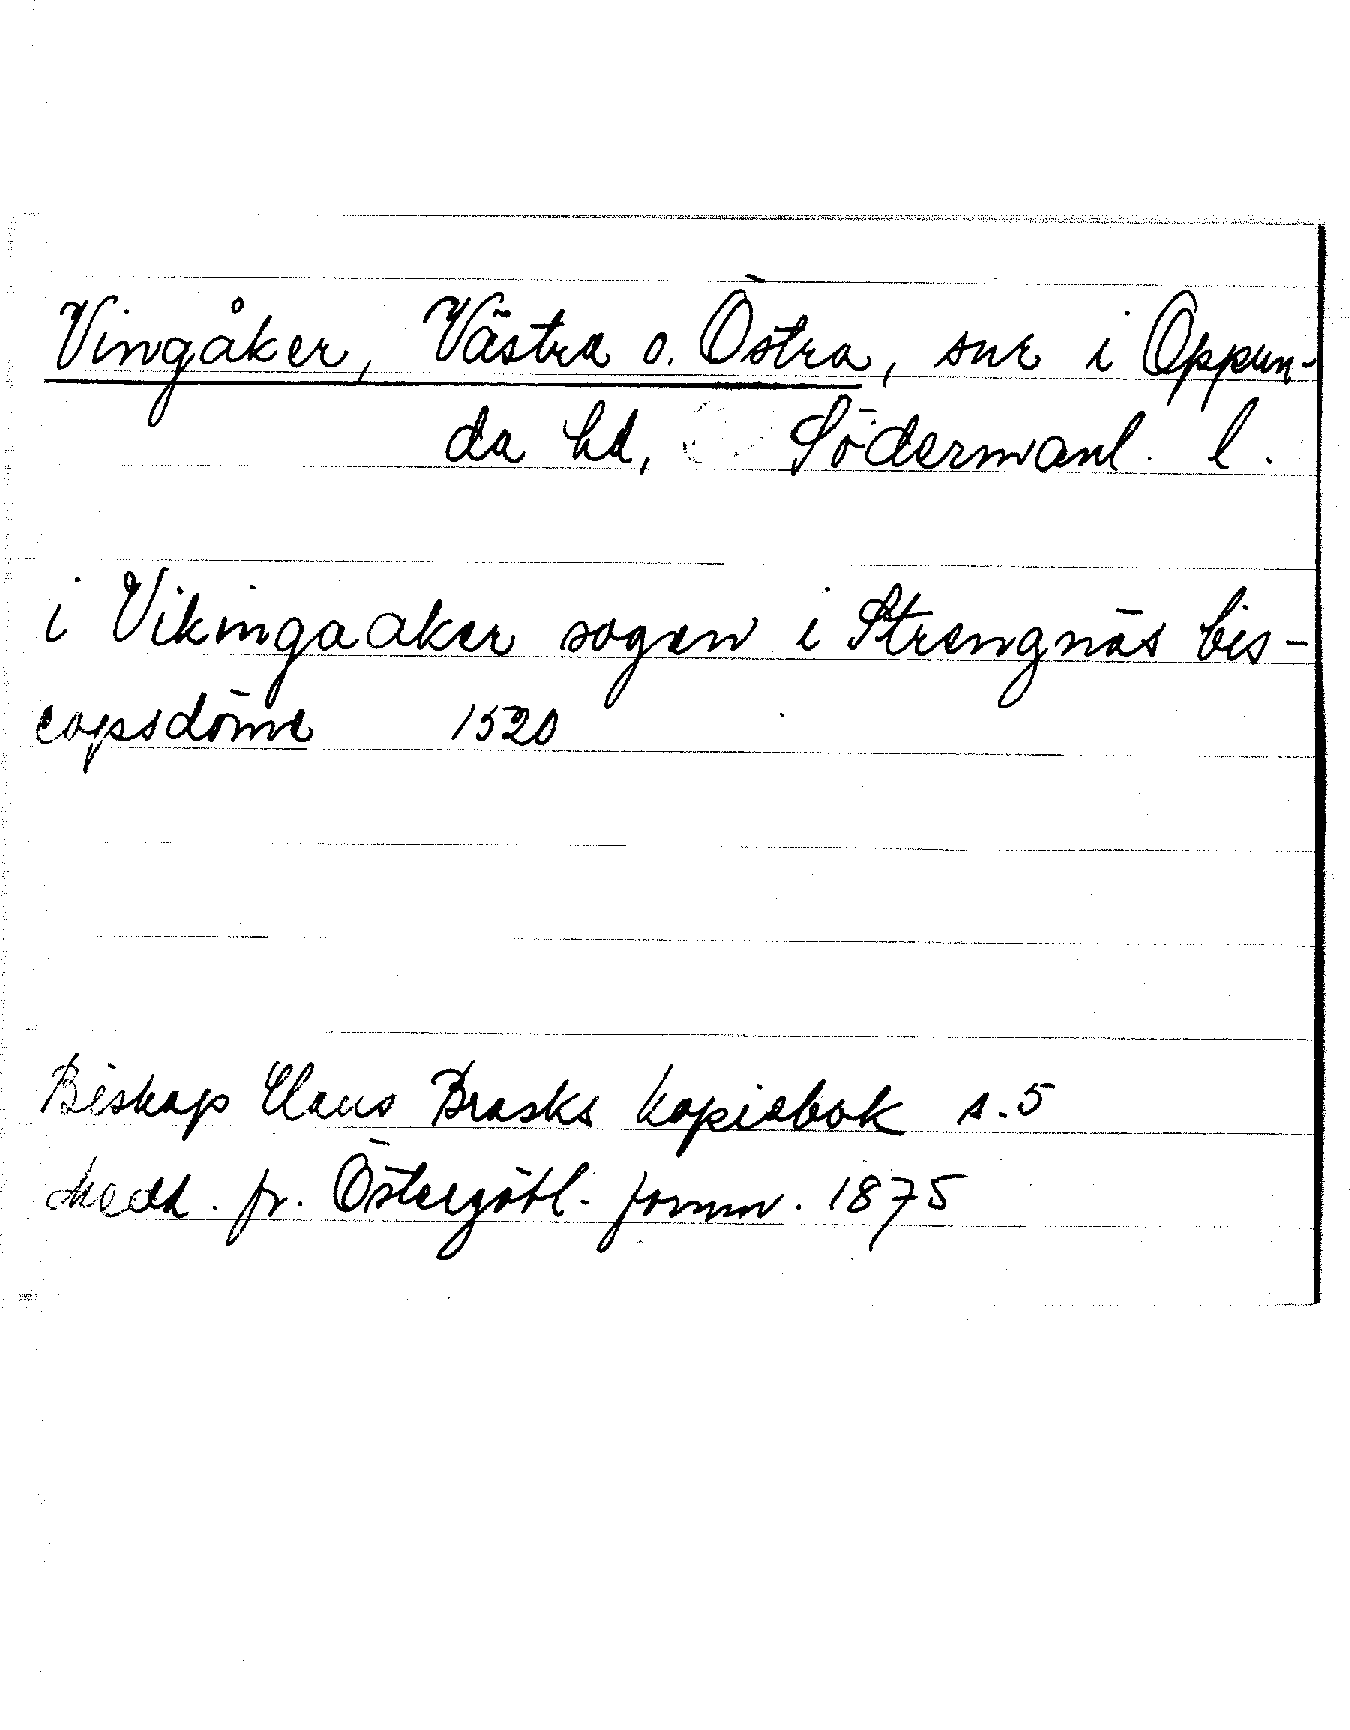 Vingåker, Västra o. Östra, snr i Oppun-
da hd, Södermanl. l.
i Vikingaaker sogen i Strengnäs bis-
copsdöme 1520
Biskop Hans Brasks kopiebok s. 5
Medd. fr. Östergötl. fornm. 1875